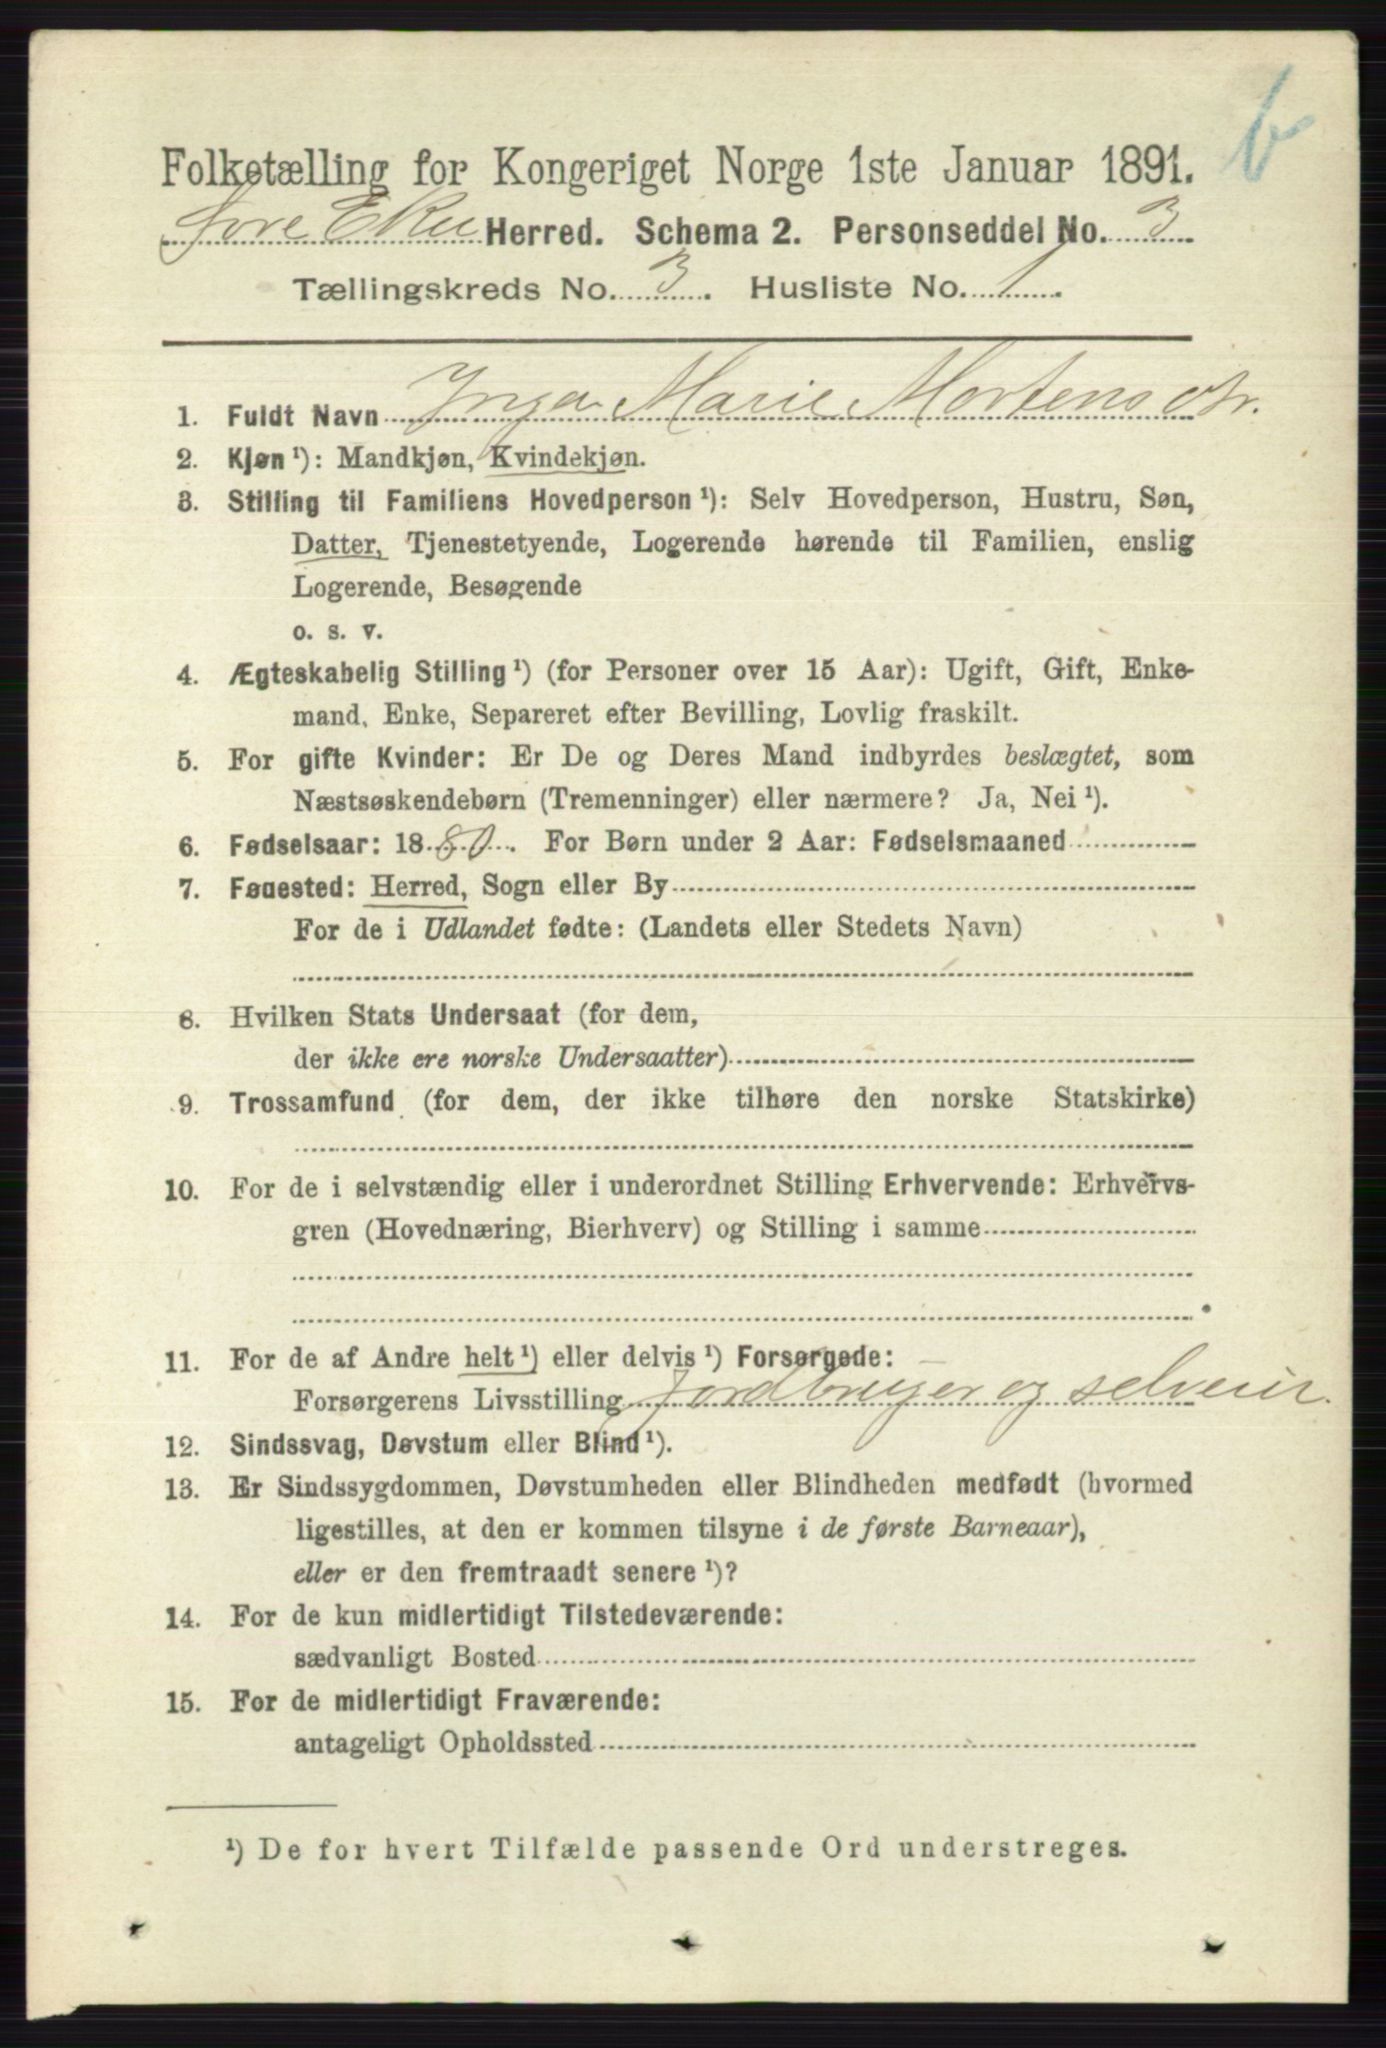 b
Folketælling for Kongeriget Norge 1ste Januar 1891.
Øvre Eker Herred. Schema 2. Personseddel No. 3
Tællingskreds No. 3. Husliste No. 1.
1. Fuldt Navn Inga Marie Mortensdtr.
2. Kjøn ¹): Mandkjøn, Kvindekjøn.
3. Stilling til Familiens Hovedperson ¹): Selv Hovedperson, Hustru, Søn,
Datter, Tjenestetyende, Logerende hørende til Familien, enslig
Logerende, Besøgende
o. s. v.
4. Ægteskabelig Stilling ¹) (for Personer over 15 Aar): Ugift, Gift, Enke-
mand, Enke, Separeret efter Bevilling, Lovlig fraskilt.
5. For gifte Kvinder: Er De og Deres Mand indbyrdes beslægtet, som
Næstsøskendebørn (Tremenninger) eller nærmere? Ja, Nei ¹).
6. Fødselsaar: 1880. For Børn under 2 Aar: Fødselsmaaned
7. Fødested: Herred, Sogn eller By
For de i Udlandet fødte: (Landets eller Stedets Navn)
8. Hvilken Stats Undersaat (for dem,
der ikke ere norske Undersaatter)
9. Trossamfund (for dem, der ikke tilhøre den norske Statskirke)
10. For de i selvstændig eller i underordnet Stilling Erhvervende: Erhvervs-
gren (Hovednæring, Bierhverv) og Stilling i samme
11. For de af Andre helt ¹) eller delvis ¹) Forsørgede:
Forsørgerens Livsstilling Jordbruger og selveier.
12. Sindssvag, Døvstum eller Blind ¹).
13. Er Sindssygdommen, Døvstumheden eller Blindheden medfødt (hvormed
ligestilles, at den er kommen tilsyne i de første Barneaar),
eller er den fremtraadt senere ¹)?
14. For de kun midlertidigt Tilstedeværende:
sædvanligt Bosted
15. For de midlertidigt Fraværende:
antageligt Opholdssted
¹) De for hvert Tilfælde passende Ord understreges.